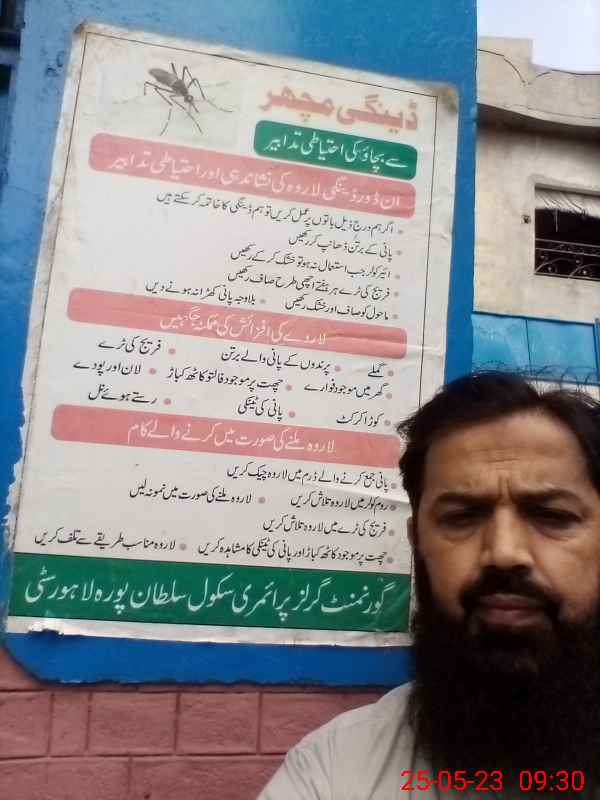 ڈینگی مچھر
سے بچاؤ کی احتیاطی تدابیر
ان ڈور ڈینگی لاروہ کی نشاندہی اور احتیاطی تدابیر
• اگر ہم درج ذیل باتوں پر عمل کریں تو ہم ڈینگی کا خاتمہ کر سکتے ہیں
• پانی کے برتن ڈھانپ کر رکھیں
• ائیر کولر جب استعمال نہ ہو تو خشک کر کے رکھیں
• فریج کی ٹرے ہر ہفتے اچھی طرح صاف رکھیں
• ماحول کو صاف اور خشک رکھیں • بلاوجہ پانی کھڑا نہ ہونے دیں
لاروے کی افزائش کی ممکنہ جگہیں
• گملے • پرندوں کے پانی والے برتن • فریج کی ٹرے
• گھر میں موجود فوارے • چھت پر موجود فالتو کاٹھ کباڑ • لان اور پودے
• کوڑا کرکٹ • پانی کی ٹینکی • رستے ہوئے نل
لاروہ ملنے کی صورت میں کرنے والے کام
• پانی جمع کرنے والے ڈرم میں لاروہ چیک کریں
• روم کولر میں لاروہ تلاش کریں • لاروہ ملنے کی صورت میں نمونہ لیں
• فریج کی ٹرے میں لاروہ تلاش کریں
• چھت پر موجود کاٹھ کباڑ اور پانی کی ٹینکی کا مشاہدہ کریں • لاروہ مناسب طریقے سے تلف کریں
گورنمنٹ گرلز پرائمری سکول سلطان پورہ لاہور سٹی
25-05-23 09:30